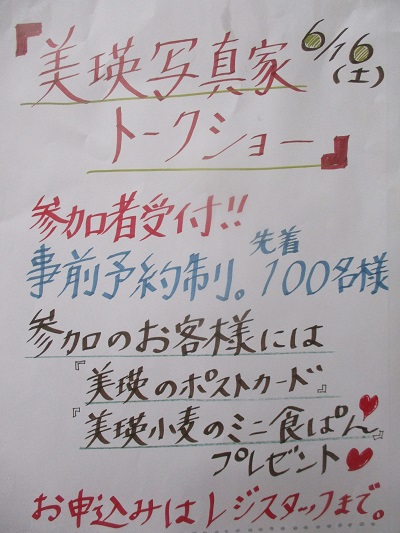 『美瑛写真家 6/16(土)
トークショー』
参加者受付!!
事前予約制。先着100名様
参加のお客様には
『美瑛のポストカード』
『美瑛小麦のミニ食ぱん』
プレゼント
お申込みはレジスタッフまで。